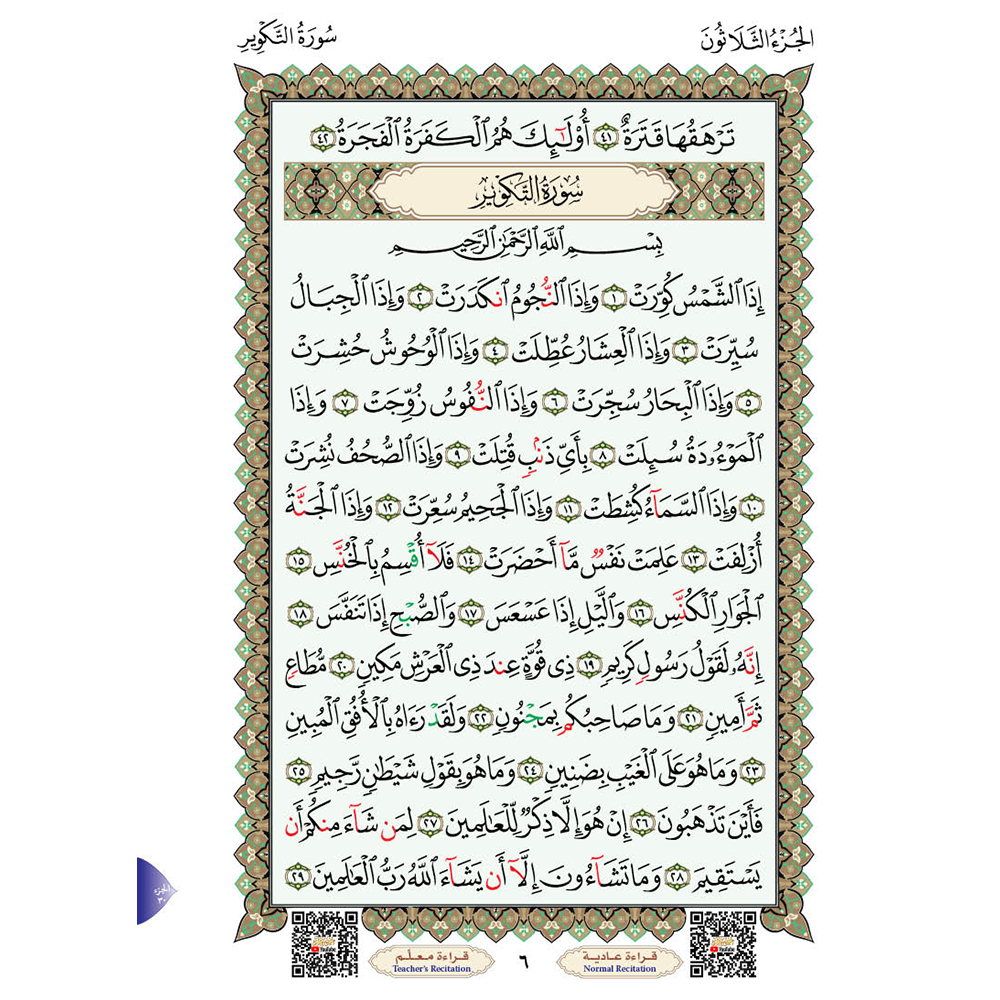 الجُزْءُ الثَّلَاثُونَ
سُورَةُ التَّكْوِيرِ
تَرْهَقُهَا قَتَرَةٌ ٤١ أُوْلَٰٓئِكَ هُمُ ٱلْكَفَرَةُ ٱلْفَجَرَةُ ٤٢
سُورَةُ التَّكْوِيرِ
بِسْمِ ٱللَّهِ ٱلرَّحْمَٰنِ ٱلرَّحِيمِ
إِذَا ٱلشَّمْسُ كُوِّرَتْ ١ وَإِذَا ٱلنُّجُومُ ٱنكَدَرَتْ ٢ وَإِذَا ٱلْجِبَالُ
سُيِّرَتْ ٣ وَإِذَا ٱلْعِشَارُ عُطِّلَتْ ٤ وَإِذَا ٱلْوُحُوشُ حُشِرَتْ
٥ وَإِذَا ٱلْبِحَارُ سُجِّرَتْ ٦ وَإِذَا ٱلنُّفُوسُ زُوِّجَتْ ٧ وَإِذَا
ٱلْمَوْءُۥدَةُ سُئِلَتْ ٨ بِأَيِّ ذَنۢبٍ قُتِلَتْ ٩ وَإِذَا ٱلصُّحُفُ نُشِرَتْ
١٠ وَإِذَا ٱلسَّمَآءُ كُشِطَتْ ١١ وَإِذَا ٱلْجَحِيمُ سُعِّرَتْ ١٢ وَإِذَا ٱلْجَنَّةُ
أُزْلِفَتْ ١٣ عَلِمَتْ نَفْسٌ مَّآ أَحْضَرَتْ ١٤ فَلَآ أُقْسِمُ بِٱلْخُنَّسِ ١٥
ٱلْجَوَارِ ٱلْكُنَّسِ ١٦ وَٱلَّيْلِ إِذَا عَسْعَسَ ١٧ وَٱلصُّبْحِ إِذَا تَنَفَّسَ ١٨
إِنَّهُۥ لَقَوْلُ رَسُولٍ كَرِيمٍ ١٩ ذِى قُوَّةٍ عِندَ ذِى ٱلْعَرْشِ مَكِينٍ ٢٠ مُّطَاعٍ
ثَمَّ أَمِينٍ ٢١ وَمَا صَاحِبُكُم بِمَجْنُونٍ ٢٢ وَلَقَدْ رَءَاهُ بِٱلْأُفُقِ ٱلْمُبِينِ
٢٣ وَمَا هُوَ عَلَى ٱلْغَيْبِ بِضَنِينٍ ٢٤ وَمَا هُوَ بِقَوْلِ شَيْطَٰنٍ رَّجِيمٍ ٢٥
فَأَيْنَ تَذْهَبُونَ ٢٦ إِنْ هُوَ إِلَّا ذِكْرٌ لِّلْعَٰلَمِينَ ٢٧ لِمَن شَآءَ مِنكُمْ أَن
يَسْتَقِيمَ ٢٨ وَمَا تَشَآءُونَ إِلَّآ أَن يَشَآءَ ٱللَّهُ رَبُّ ٱلْعَٰلَمِينَ ٢٩
الجزء
٣٠
قراءة عادية
Normal Recitation
٦
قراءة معلّم
Teacher's Recitation